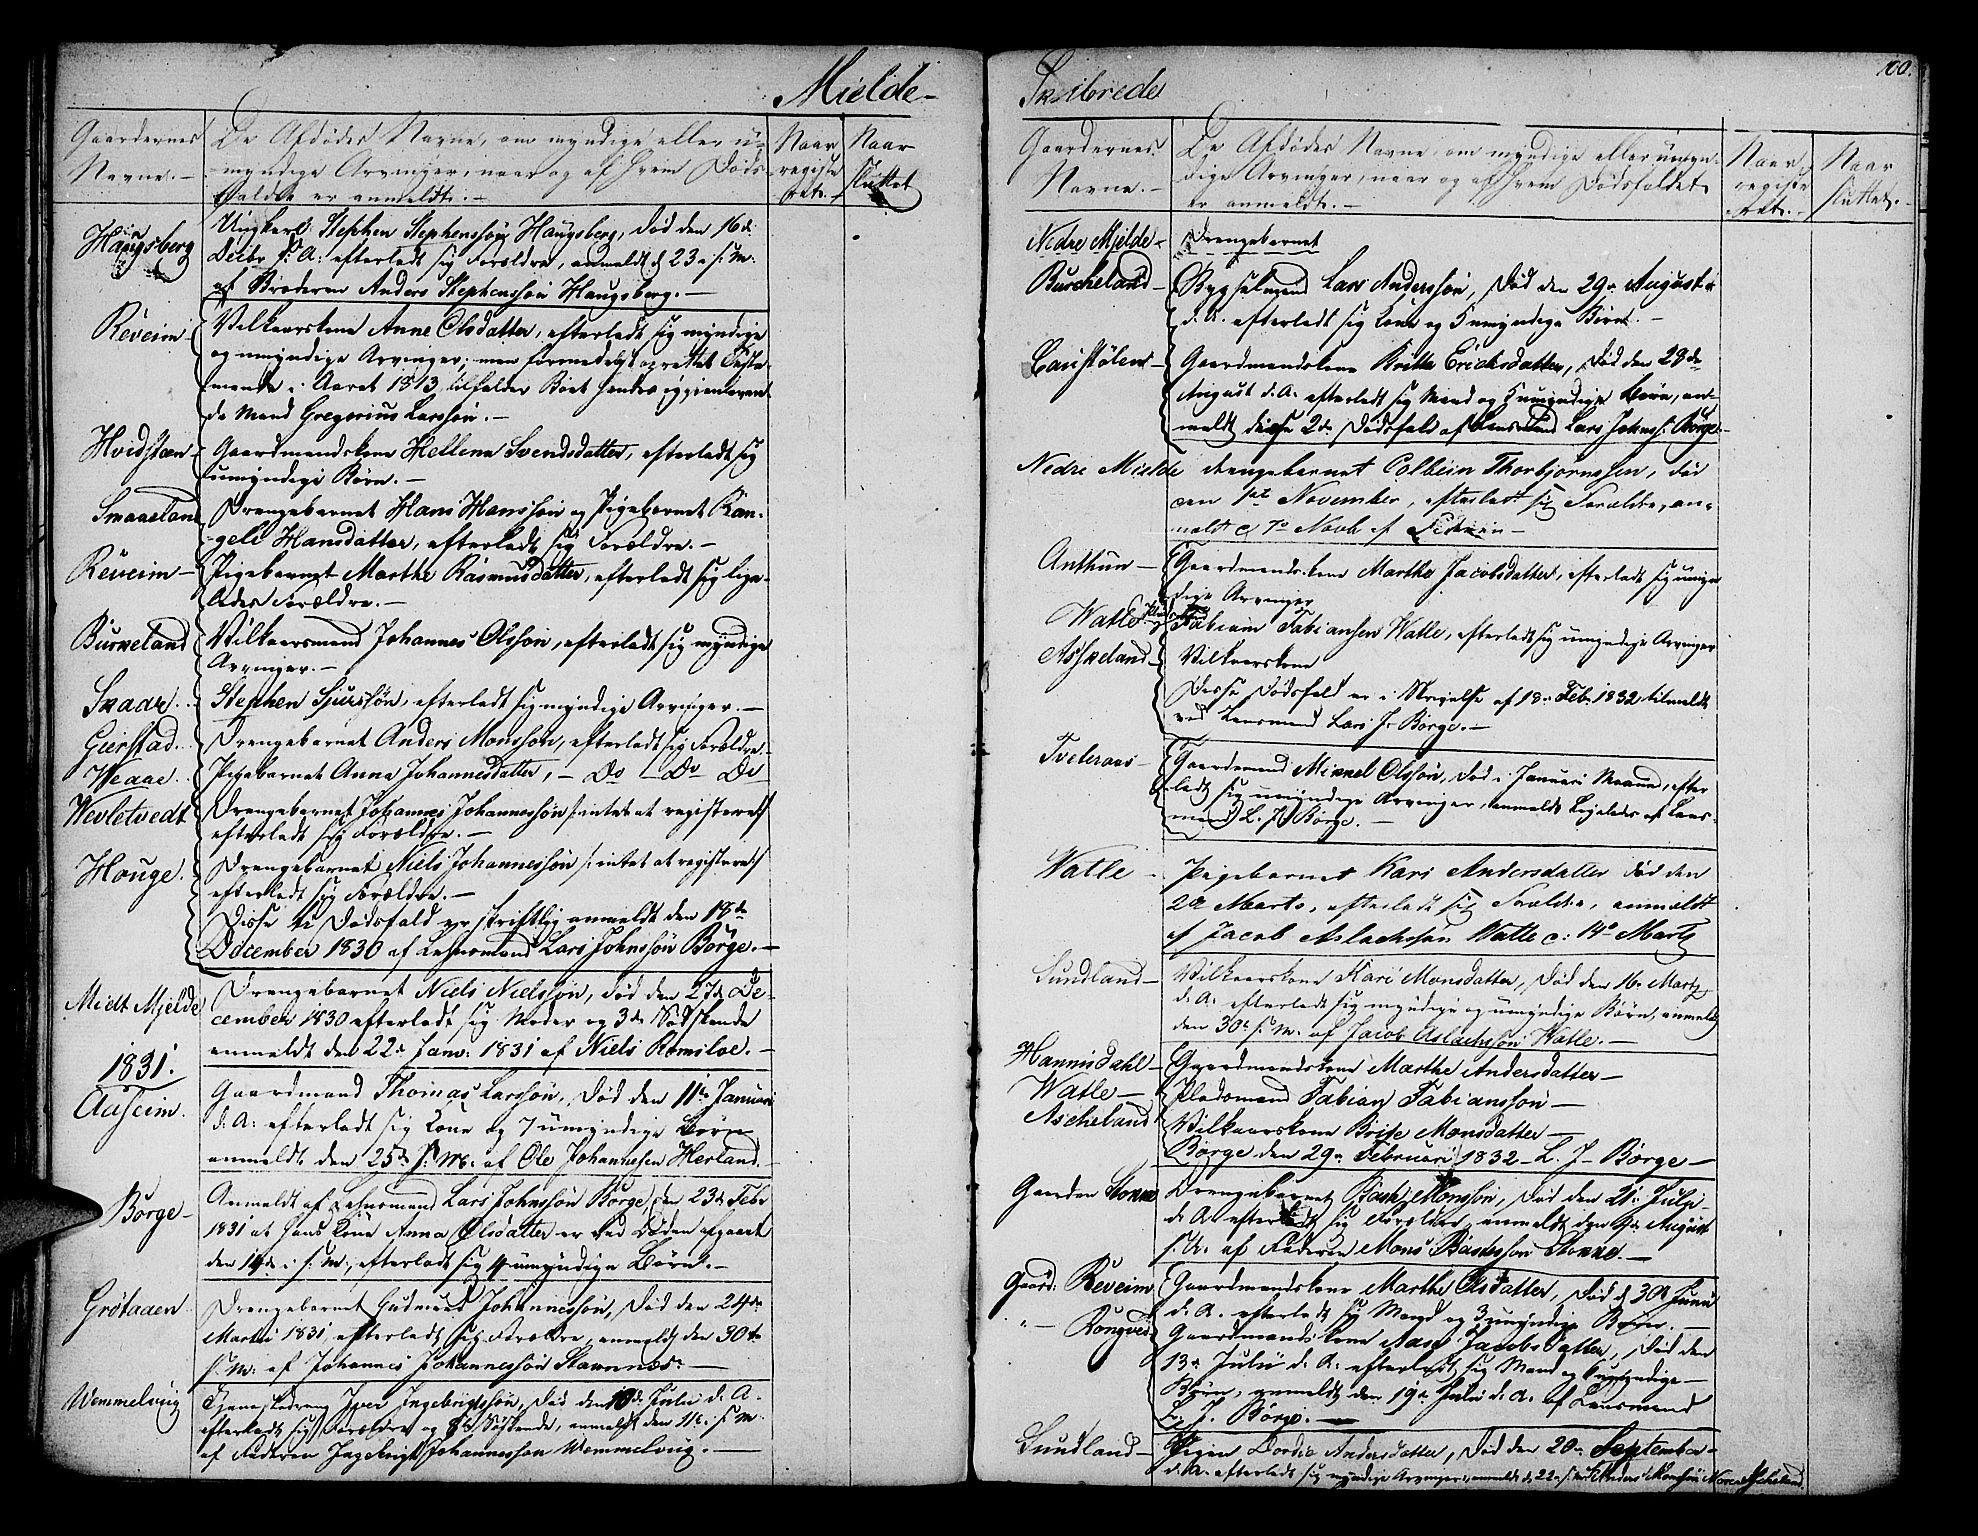 Mielde-
Gaardernes
Navne.-
De Afdødes Navne, om myndige eller u-
myndige Arvinger, naar og af hvem Døds-
faldet er anmeldt.-
Naar
registe
ret.-
Naar
sluttet
Haugsberg
Ungkarl Stephen Stephenssøn Haugsberg, død den 16d:
Decbr f: A: efterladt sig Forældre, anmeldt d 23e s: M:
af Broderen Anders Stephenssøn Haugsberg.-
Reveim
Vilkaarskone Anne Olsdatter, efterladt sig myndige
og umyndige Arvinger, men formedelst oprettet Testa-
mente i Aaret 1813 tilfalder Boet hendes igjenleven
de Mand Gregorius Larsson.-
Hvidsteen
Gaardmandskone Hellena Svendsdatter, efterladt sig
umyndige Børn.-
Smaaeland
Drengebarnet Hans Hanssøn og Pigebarnet Ran-
geli Hansdatter, efterladt sig Forældre.-
Reveim-
Pigebarnet Marthe Rasmusdatter, efterladt sig lige-
ledes Forældre.-
Burkeland
Vilkaarsmand Johannes Olssøn, efterladt sig myndige
Arvinger.-
Skaar.
Stephen Sjurssøn, efterladt sig myndige Arvinger.-
Gierstad.
Drengebarnet Anders Monssøn, efterladt sig Forældre
Heaae.
Pigebarnet Anna Johannesdatter, - Do - Do Do
Wevletvedt
Drengebarnet Johannes Johannessøn /: intet at registere :/
efterladt sig Forældre.-
Houge.
Drengebarnet Niels Johannessøn /: intet at registere :/
efterladt sig Forældre.-
Disse ti Dødsfald er skriftlig anmeldt den 18de
December 1830 af Lehnsmand Lars Johnssøn Børge.-
Midt Mjelde
Drengebarnet Niels Nielssøn, død den 27d De-
cember 1830 efterladt sig Moder og 3de Sødskende
anmeldt den 22d Janv: 1831 af Niels Romsloe.-
1831.
Aaseim.
Gaardmand Thomas Larssøn, død den 11te Januari
d. A: efterladt sig Kone og 7 umyndige Børn
anmeldt den 25de s: M: af Ole Johannesen Herland.
Børge-
Anmeldt af Lehnsmand Lars Johnssøn Børge, den 23d Febr
1831 at hans Kone Anna Olsdatter er ved Døden afgaaet
den 14de i s: M:, efterladt sig 4 umyndige Børn.-
Grøtaaen
Drengebarnet Gudmund Johannessøn, død den 24de
Martii 1831, efterladt sig Forældre, anmeldt den 30te
s: M: af Johannes Johannessøn Stavnnæs:-
Wemmelvug
Tjenestedreng Iver Ingebrigtssøn, død den 10de Julii d: A-
efterladt sig Forældre og Sødskende, anmeldt den 11t: s: M:
af Faderen Ingebrigt Johannesson Wemmelvug.-
Skibrede
100.
Gaardernes
Navne.-
De Afdødes Navne, om myndige eller umyn-
dige Arvinger, naar og af hvem Dødsfaldet
er anmeldt.-
Naar
registe
ret.-
Naar
sluttet.-
Nedre Mjelde-
Drengebarnet
Burcheland-
Bygselmand Lars Anderssøn, død den 29e August
d. A. efterladt sig Kone og 5 umyndige Børn.-
Gaardmandskone Britte Ericksdatter, død den 28de
August d. A: efterladt sig Mand og 5 umyndige Børn, an-
meldt disse 2de Dødsfald af Lensmand Lars Johns: Børge-
Nedre Mielde
Drengebarnet Colbein Thorbjørnssen, død
den 1st November, efterladt sig Forældre, an-
meldt d 7e Novb af
Anthun-
Gaardmandskone Marthe Jacobsdatter, efterladt sig umyn
dige Arvinger
Watle
Fabiam Fabiansen Watle, efterladt sig umyndige Arvinger
Asskeland-
Vilkaarskone
Disse Dødsfald er i Skrivelse af 18e Feb: 1832 tilmeldt
ved Lensmand Lars J: Børge.-
Tveteraas-
Gaardmand Mikkel Olssøn, død i Januari Maaned, efter
ladt sig umyndige Arvinger, anmeldt ligeledes af Lens-
mand L. J. Børge.-
Watle-
Pigebarnet Kari Andersdatter død den
2de Marts, efterladt sig Forældre, anmeldt
af Jacob Aslachssøn Watle d: 14e Martz
Sundland-
Vilkaarskone Kari Monsdatter, død den 16e Martz
d. A: efterladt sig myndige og umyndige Børn, anmeldt
den 30t s: M: af Jacob Aslachssøn Watle.-
Hannisdahl-
Gaardmandskone Marthe Andersdatter-
Watle-
Pladsmand Fabian Fabianssøn-
Ascheland
Vilkaarskone Brite Monsdatter-
Børge den 29e Februari 1832- L. J- Børge-
Gaarden Stokke
Drengebarnet Monssøn, død den 21: July-
d: A: efterladt sig Forældre, anmeldt den August
s. A: af Faderen Mons Stokke.-
Gaard: Reveim
Gaardmandskone Marthe Olsdatter, død d 30t Junii
d: A. efterladt sig Mand og 3 umyndige Børn.-
"- Rongved
Gaardmandskone Aase Jacobsdatter, død den
13e Julii d. A: efterladt sig Mand og 6 umyndige-
Børn, anmeldt den 19e Julii d. A. af Lensmand
L. J. Børge.-
Sundland-
Pigen Dordie Andersdatter, død den 20e September
d. A: efterladt sig myndige Arvinger, anmeldt d 22e s: M: Anders Monssøn Nore Ascheland.